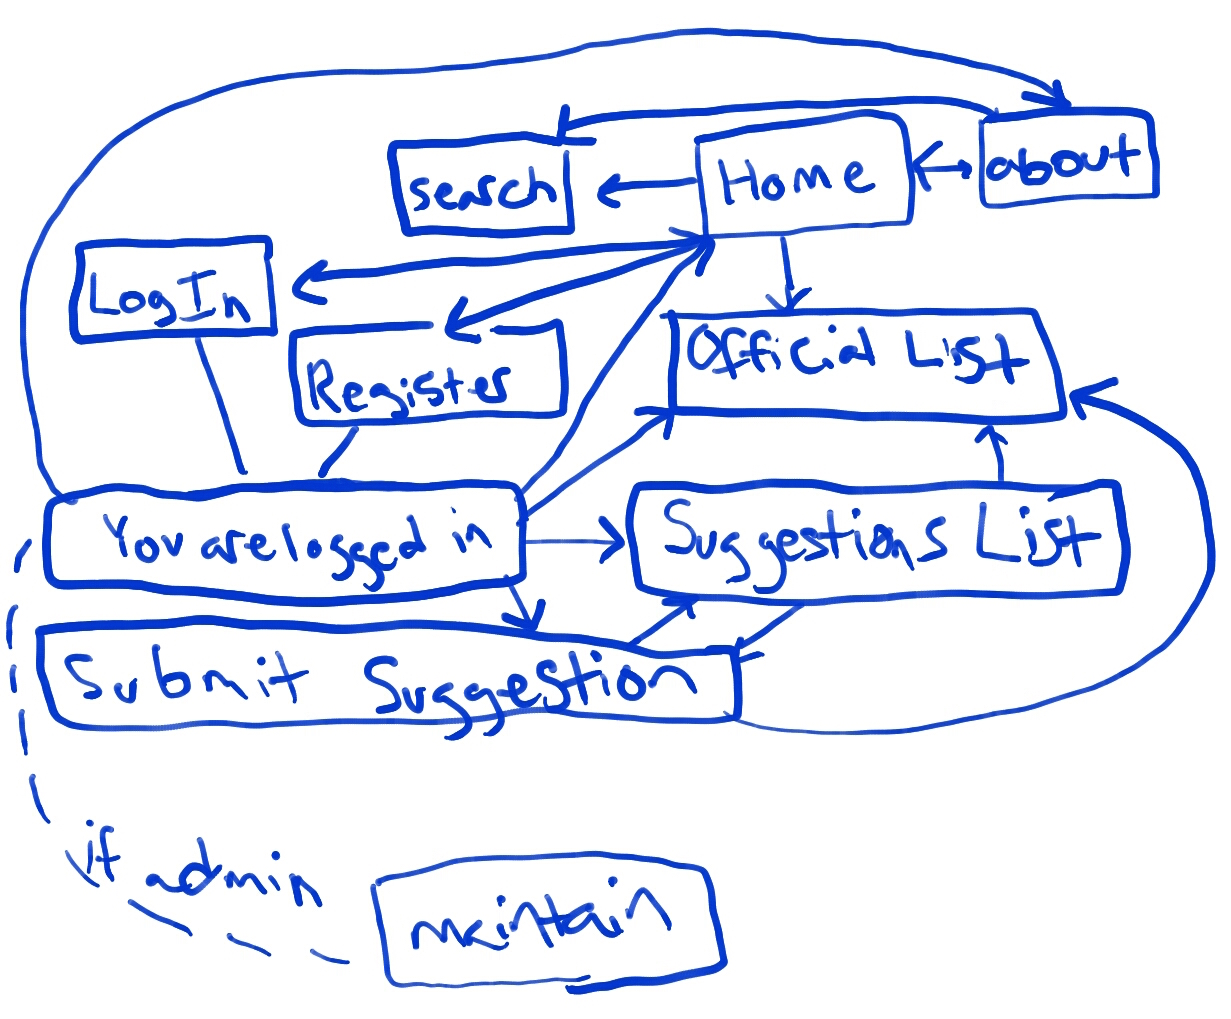 search
Home
about
LogIn
Register
Official List
You are logged in
Suggestions List
Submit Suggestion
if admin
maintain